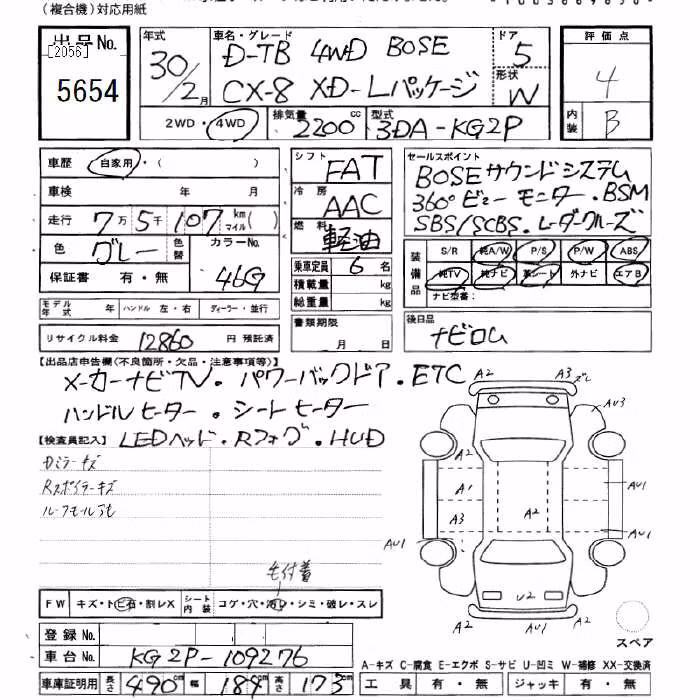 (複合機)対応用紙
出品No.
[2056]
5654
年式
30/2月
車名・グレード
D-TB 4WD BOSE
CX-8 XD-Lパッケージ
ドア
5
形状
W
評価点
4
内装
B
2WD・4WD
排気量
2200cc
型式
3DA-KG2P
車歴
自家用・( )
車検 年 月
走行 7万5千107km マイル( )
色 グレー 色替
カラーNo.
46G
保証書 有・無
シフト FAT
冷房 AAC
燃料 軽油
乗車定員 6名
積載量 kg
総重量 kg
セールスポイント
BOSEサウンドシステム
360°ビューモニター・BSM
SBS/SCBS・レーダクルーズ
装備品
S/R 純A/W P/S P/W ABS
純TV 純ナビ 革シート 外ナビ エアB
ナビ型番:
モデル年式 年 ハンドル 左・右 ディーラー・並行
リサイクル料金 12860 円 預託済
書類期限
月 日
後日品
ナビロム
【出品店申告欄(不良箇所・欠品・注意事項等)】
メーカーナビTV・パワーバックドア・ETC
ハンドルヒーター・シートヒーター
【検査員記入】 LEDヘッド・Rフォグ・HUD
Dミラーキズ
Rスポイラーキズ
ルーフモール
A2 A3 ズレ
AU3
A2
A1
A2
A3
AU1
AU1
AU1
A2
U2
A2 A2
スペア
毛付着
FW キズ・トビ石・割レX シート内装 コゲ・穴・汚レ・シミ・破レ・スレ
登録No.
車台No. KG2P-109276
車庫証明用 長さ 490cm 幅 184cm 高さ 173cm
A-キズ C-腐食 E-エクボ S-サビ U-凹ミ W-補修 XX-交換済
工具 有・無 ジャッキ 有・無